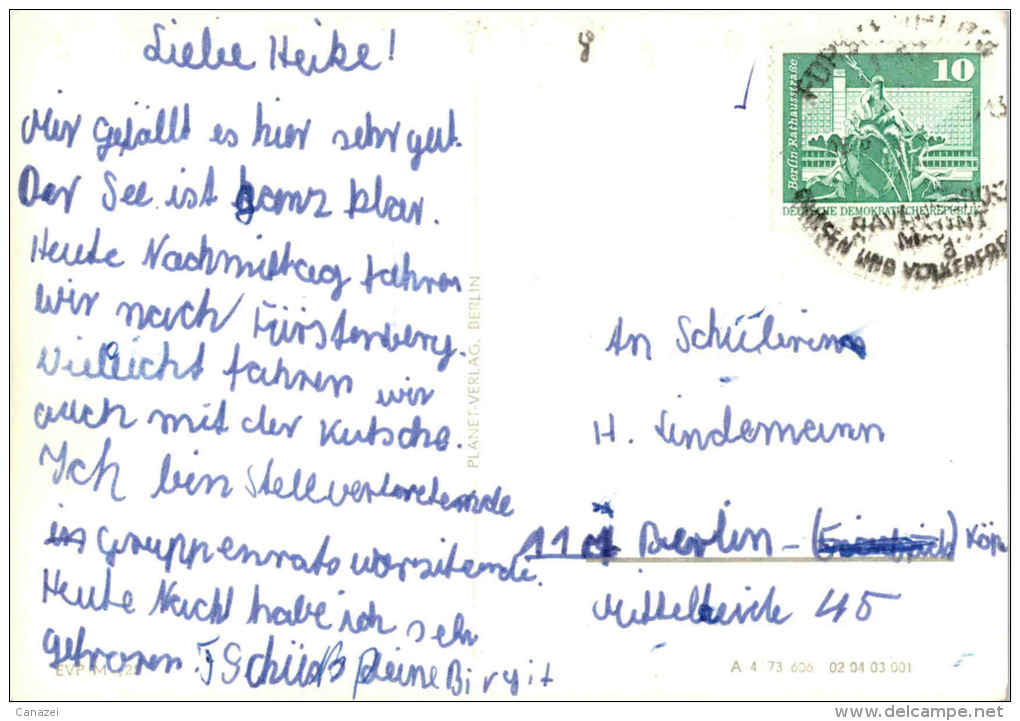 Liebe Heike!
Mir gefällt es hier sehr gut.
Der See ist ganz klar.
Heute Nachmittag fahren
wir nach Fürstenberg.
Vielleicht fahren wir
auch mit der Kutsche.
Ich bin Stellvertretende
Gruppenratsvorsitende.
Heute Nacht habe ich sehr
gefroren. Tschüß Deine Birgit
EVP M
PLANET-VERLAG, BERLIN
8
10
Berlin-Rathausstraße
DEUTSCHE DEMOKRATISCHE REPUBLIK
UND
An Schülerinn
H. Lindemann
Berlin - Köp
Mittelheide 45
A 4 73 606 02 04 03 001
Canazei
www.delcampe.net